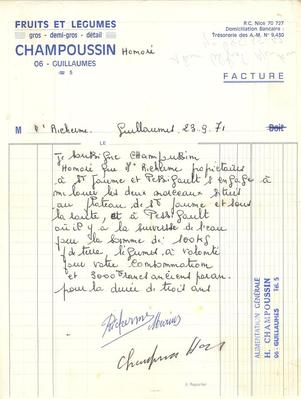 FRUITS ET LÉGUMES
gros - demi-gros - détail
CHAMPOUSSIN Honoré
06 - GUILLAUMES
☎ 5
R.C. Nice 70 727
Domiciliation Bancaire :
Trésorerie des A.-M. N° 9.450
FACTURE
M r Richerme. Guillaumes, 23.9.71 Doit
LE
Je soussigné CHAMPOUSSIN
Honoré que Mr Richerme propriétaires
à St Jaume et Petsigault s'engage à
me louer les deux morceaux situés
au plateau de St Jaume et sous
la route, et à Petsigault
où il y a la suivesse de l'eau
pour la somme de 100 kg
de terre, légumes à volonté
pour votre consommation
et 3000 francs anciens par an.
pour la durée de trois ans
Richerme
ALIMENTATION GÉNÉRALE
H. CHAMPOUSSIN
06 - GUILLAUMES Tél. 5
A Reporter